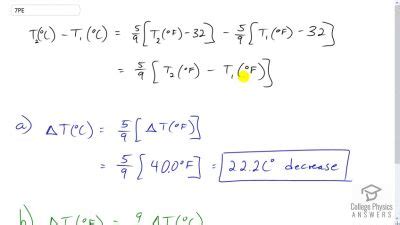 7PE
T₂(°C) - T₁(°C) = 5/9 [T₂(°F) - 32] - 5/9 [T₁(°F) - 32]
= 5/9 [T₂(°F) - T₁(°F)]
a) ΔT(°C) = 5/9 [ΔT(°F)]
= 5/9 [40.0°F] = 22.2C° decrease
b) ΔT(°F) = 9 ΔT(°C)
College Physics
ANSWERS